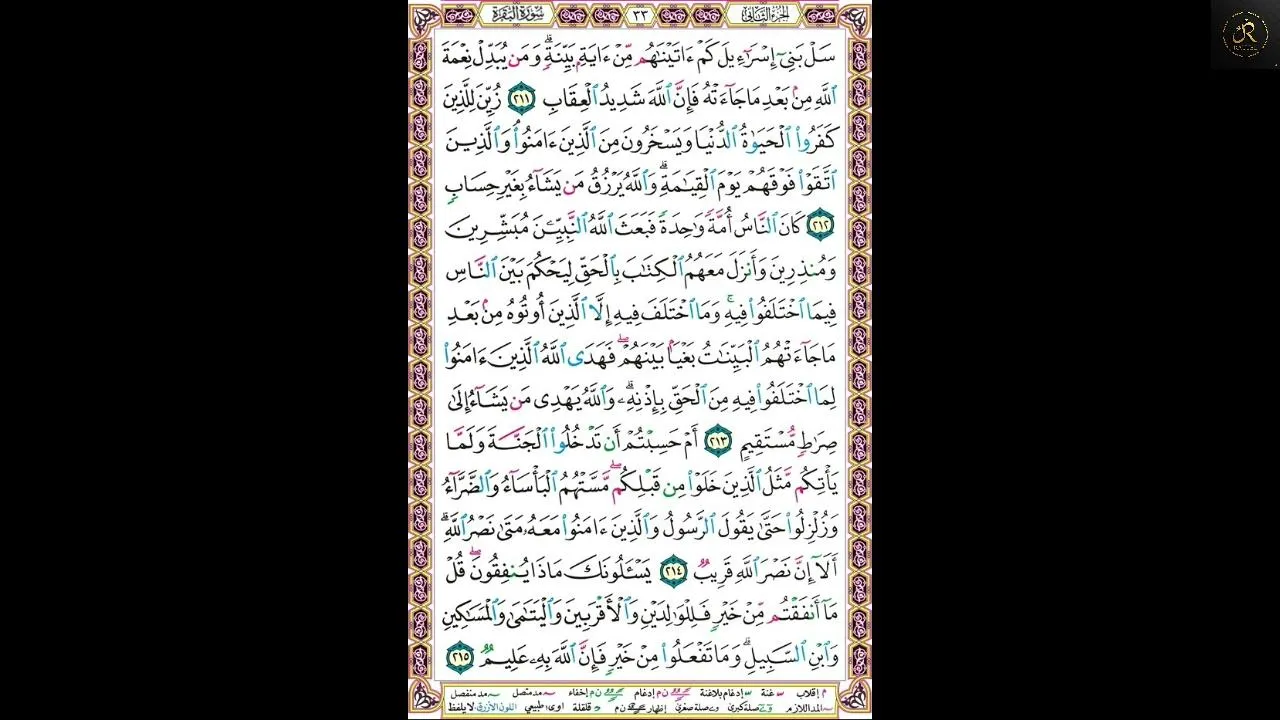 الجزء الثاني ٣٣ سورة البقرة
سَلْ بَنِىٓ إِسْرَٰٓءِيلَ كَمْ ءَاتَيْنَٰهُم مِّنْ ءَايَةِۭ بَيِّنَةٍۗ وَمَن يُبَدِّلْ نِعْمَةَ
ٱللَّهِ مِنۢ بَعْدِ مَا جَآءَتْهُ فَإِنَّ ٱللَّهَ شَدِيدُ ٱلْعِقَابِ ٢١١ زُيِّنَ لِلَّذِينَ
كَفَرُوا۟ ٱلْحَيَوٰةُ ٱلدُّنْيَا وَيَسْخَرُونَ مِنَ ٱلَّذِينَ ءَامَنُوا۟ۘ وَٱلَّذِينَ
ٱتَّقَوْا۟ فَوْقَهُمْ يَوْمَ ٱلْقِيَٰمَةِۗ وَٱللَّهُ يَرْزُقُ مَن يَشَآءُ بِغَيْرِ حِسَابٍ
٢١٢ كَانَ ٱلنَّاسُ أُمَّةً وَٰحِدَةً فَبَعَثَ ٱللَّهُ ٱلنَّبِيِّـۧنَ مُبَشِّرِينَ
وَمُنذِرِينَ وَأَنزَلَ مَعَهُمُ ٱلْكِتَٰبَ بِٱلْحَقِّ لِيَحْكُمَ بَيْنَ ٱلنَّاسِ
فِيمَا ٱخْتَلَفُوا۟ فِيهِۚ وَمَا ٱخْتَلَفَ فِيهِ إِلَّا ٱلَّذِينَ أُوتُوهُ مِنۢ بَعْدِ
مَا جَآءَتْهُمُ ٱلْبَيِّنَٰتُ بَغْيَۢا بَيْنَهُمْۖ فَهَدَى ٱللَّهُ ٱلَّذِينَ ءَامَنُوا۟
لِمَا ٱخْتَلَفُوا۟ فِيهِ مِنَ ٱلْحَقِّ بِإِذْنِهِۦۗ وَٱللَّهُ يَهْدِى مَن يَشَآءُ إِلَىٰ
صِرَٰطٍ مُّسْتَقِيمٍ ٢١٣ أَمْ حَسِبْتُمْ أَن تَدْخُلُوا۟ ٱلْجَنَّةَ وَلَمَّا
يَأْتِكُم مَّثَلُ ٱلَّذِينَ خَلَوْا۟ مِن قَبْلِكُمۖ مَّسَّتْهُمُ ٱلْبَأْسَآءُ وَٱلضَّرَّآءُ
وَزُلْزِلُوا۟ حَتَّىٰ يَقُولَ ٱلرَّسُولُ وَٱلَّذِينَ ءَامَنُوا۟ مَعَهُۥ مَتَىٰ نَصْرُ ٱللَّهِۗ
أَلَآ إِنَّ نَصْرَ ٱللَّهِ قَرِيبٌ ٢١٤ يَسْـَٔلُونَكَ مَاذَا يُنفِقُونَۖ قُلْ
مَآ أَنفَقْتُم مِّنْ خَيْرٍ فَلِلْوَٰلِدَيْنِ وَٱلْأَقْرَبِينَ وَٱلْيَتَٰمَىٰ وَٱلْمَسَٰكِينِ
وَٱبْنِ ٱلسَّبِيلِۗ وَمَا تَفْعَلُوا۟ مِنْ خَيْرٍ فَإِنَّ ٱللَّهَ بِهِۦ عَلِيمٌ ٢١٥
م إقلاب غنة إدغام بلاغنة ن م إدغام ن م إخفاء مد متصل مد منفصل
المد اللازم صلة كبرى صلة صغرى إظهار ن م قلقلة اوى طبيعي اللون الأزرق لا يلفظ